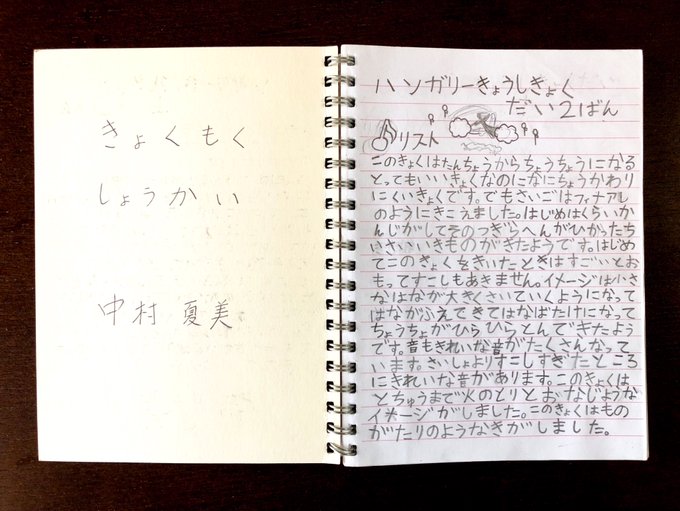 きょくもく
しょうかい
中村 夏美
ハンガリーきょうしきょく
だい2ばん
リスト
このきょくはたんちょうからちょうちょうになる
とってもいいきょくなのになにちょうかわり
にくいきょくです。でもさいごはフィナアレ
のようにきこえました。はじめはくらいか
んじがしてそのつぎらへんがひかったち
いさいいきものがきたようです。はじめ
てこのきょくをきいたときはすごいとお
もってすこしもあきません。イメージは小さ
なはなが大きくさいていくようになって
はながふえてきてはなばたけになって
ちょうちょがひらひらとんできたよう
です。音もきれいな音がたくさんなって
います。さいしょよりすこしすぎたところ
にきれいな音があります。このきょくは
とちゅうまで火のとりとおなじような
イメージがしました。このきょくはもの
がたりのようなきがしました。